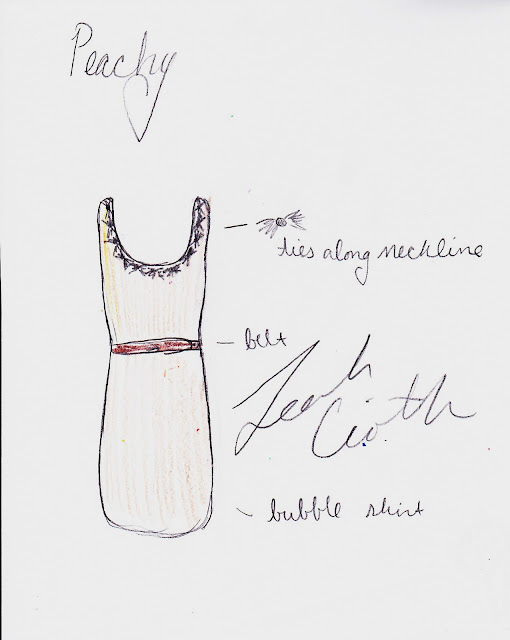 Peachy
ties along neckline
belt
Leah
bubble skirt